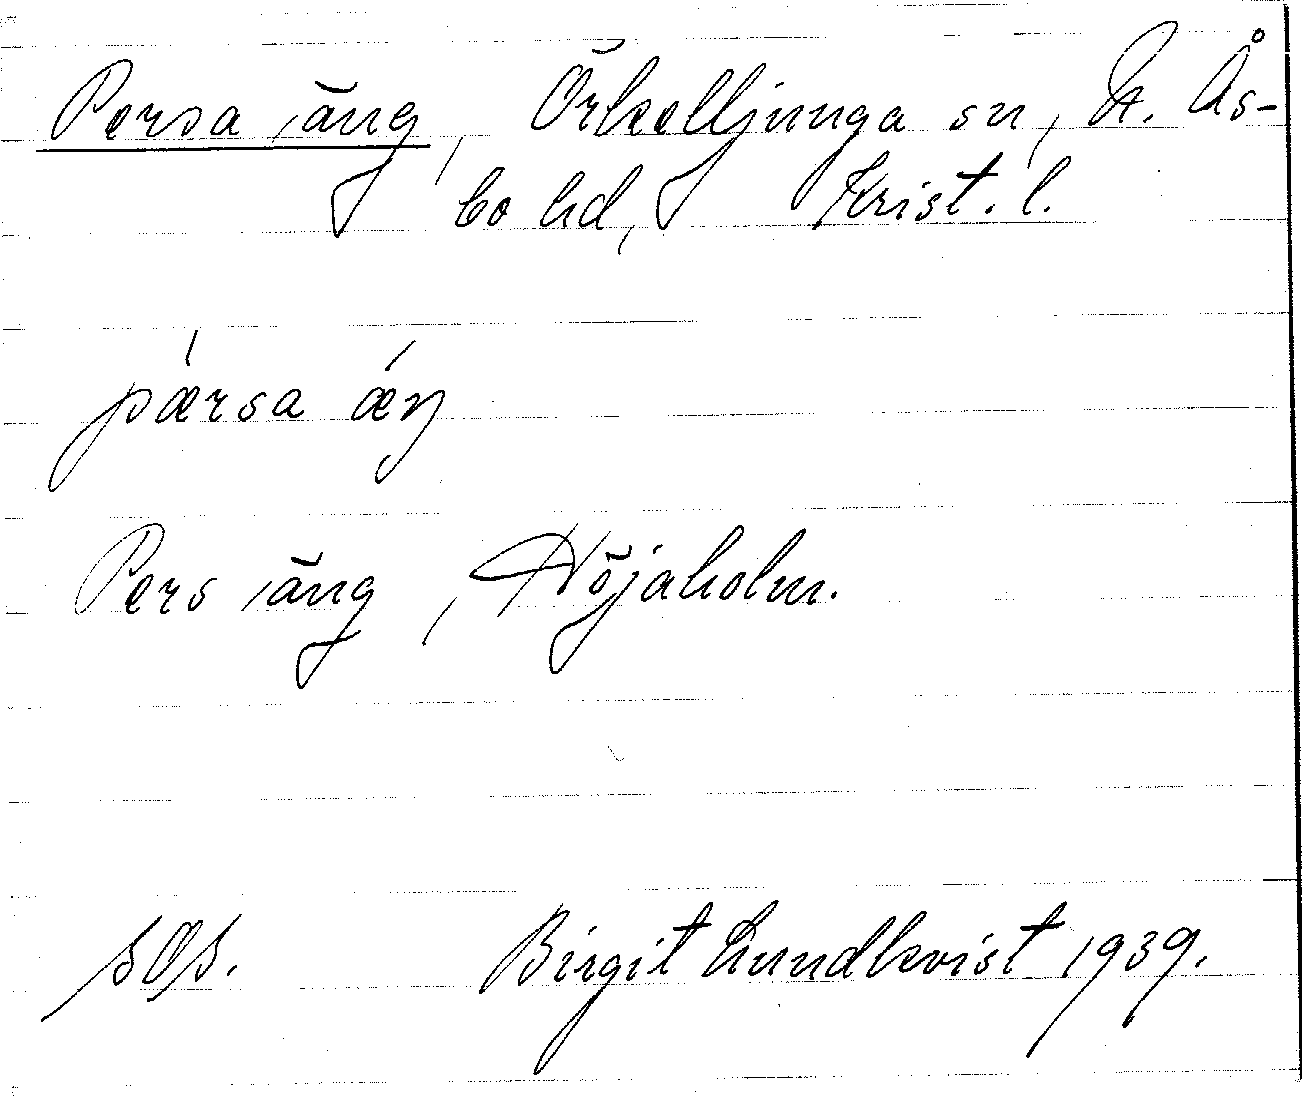 Persa äng, Örkelljunga sn, N. Ås-
bo hd, Krist. l.
pæ´rsa æ´ŋ
Pers äng, Höjaholm.
sOs.
Birgit Lundkvist 1939.